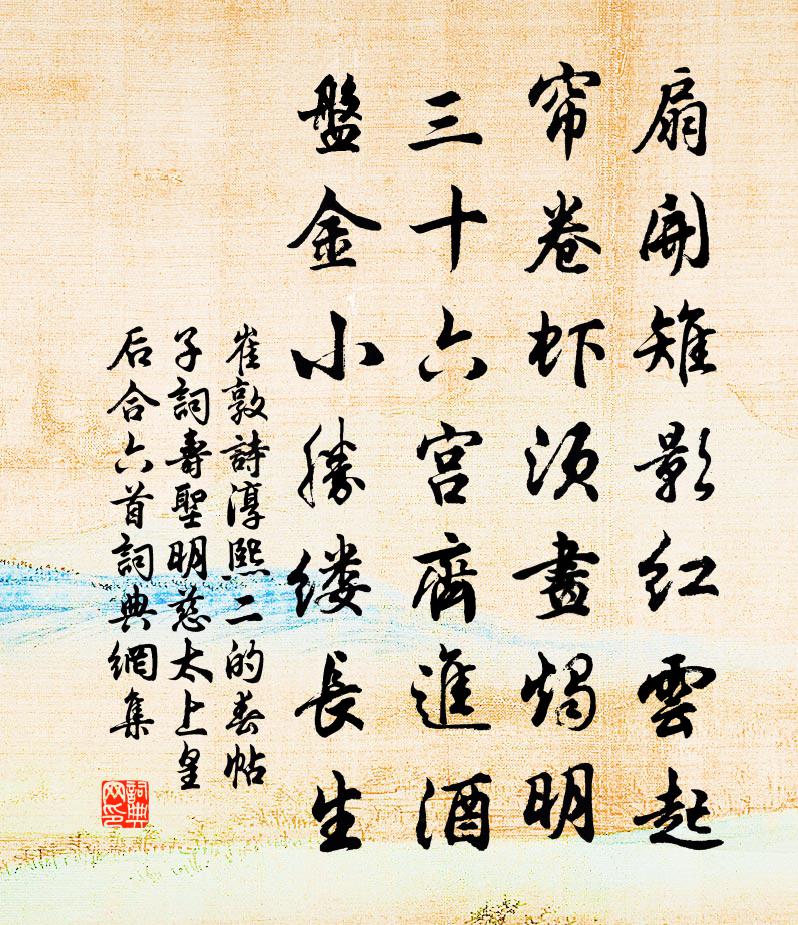 扇開雉影紅雲起
帘卷虾须畫燭明
三十六宫齊進酒
盤金小勝缕長生
崔敦詩淳熙二的春帖
子詞壽聖明慈太上皇
后合六首詞典網集
詞典
网印